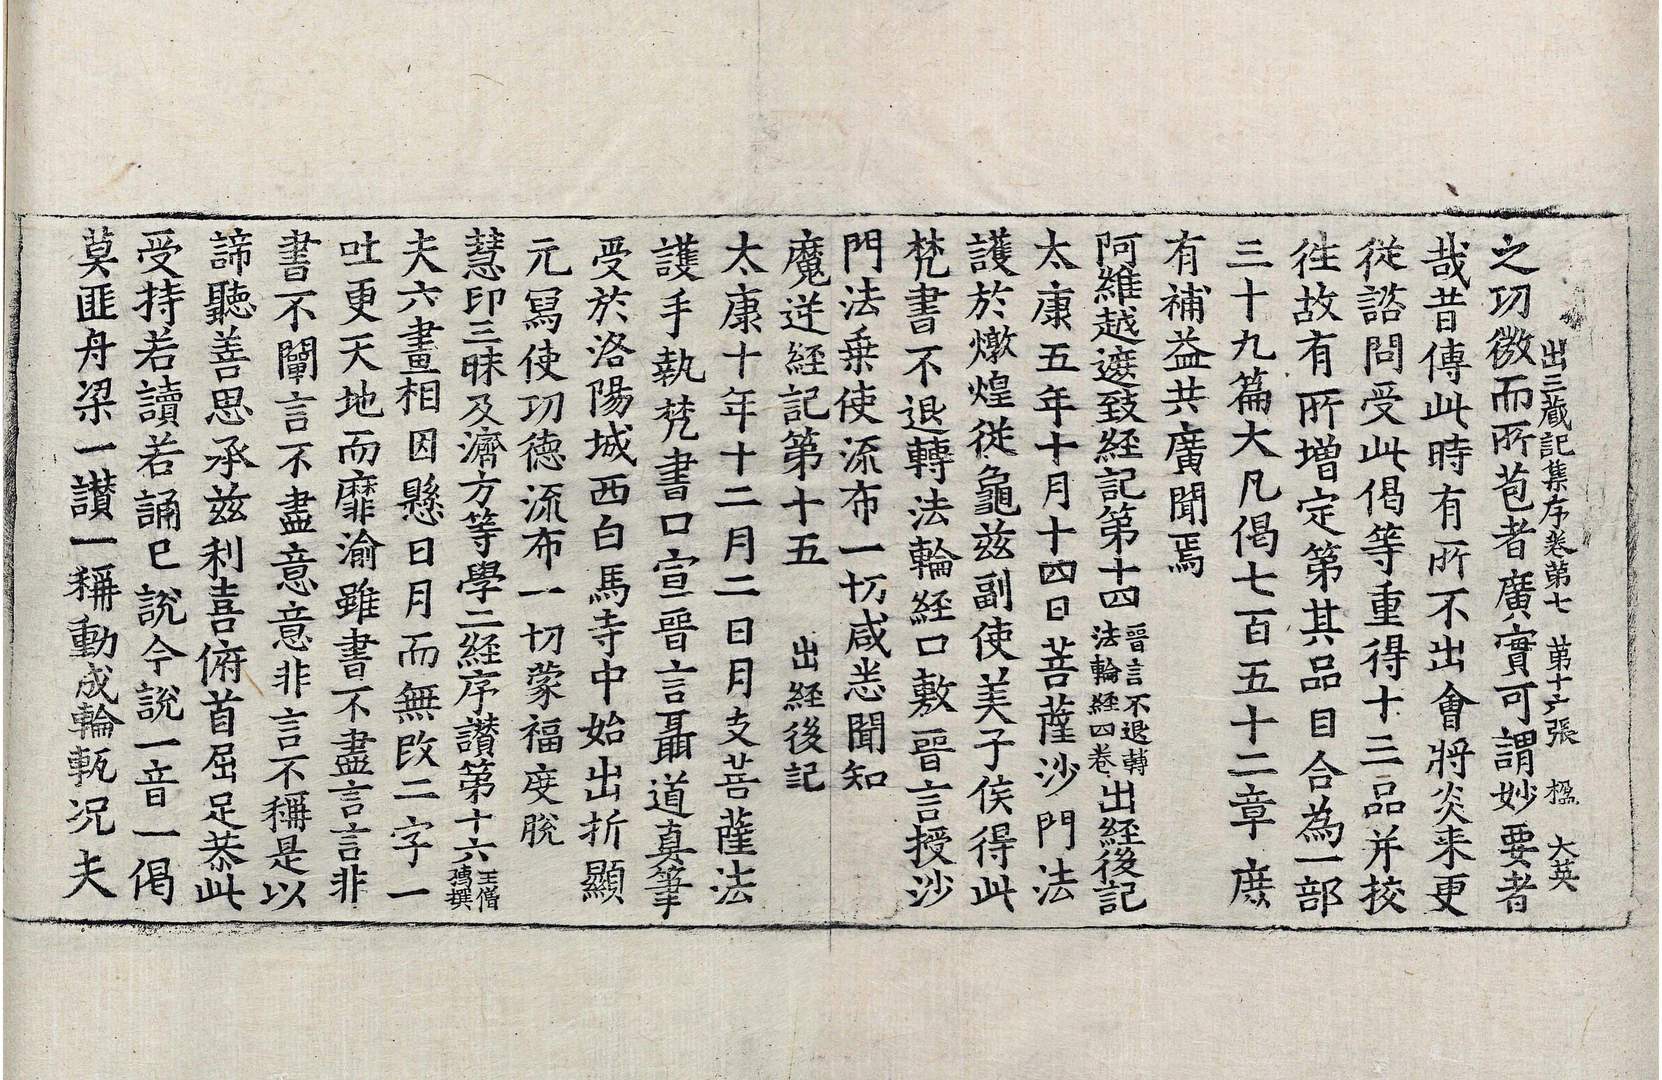 出三藏記集序卷第七　第十六張　楹　大英
之功微而所苞者廣實可謂妙要者
哉昔傳此時有所不出會將炎来更
從諮問受此偈等重得十三品并挍
徃故有所增定第其品目合為一部
三十九篇大凡偈七百五十二章庶
有補益共廣聞焉
阿維越遮致經記第十四晉言不退轉法輪經四卷出經後記
太康五年十月十四日菩薩沙門法
護於燉煌從龜茲副使美子侯得此
梵書不退轉法輪經口敷晉言授沙
門法乗使流布一切咸悉聞知
魔逆經記第十五　出經後記
太康十年十二月二日月支菩薩法
護手執梵書口宣晉言聶道真筆
受於洛陽城西白馬寺中始出折顯
元冩使功德流布一切蒙福度脫
慧印三昧及濟方等學二經序讃第十六王僧孺撰
夫六畫相因懸日月而無改二字一
吐更天地而靡渝雖書不盡言言非
書不闡言不盡意意非言不稱是以
諦聽善思承茲利喜俯首屈足恭此
受持若讀若誦已說今說一音一偈
莫匪舟梁一讃一稱動成輪軏况夫